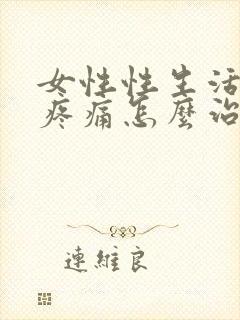 女性性生活
疼痛怎麼治
連維良